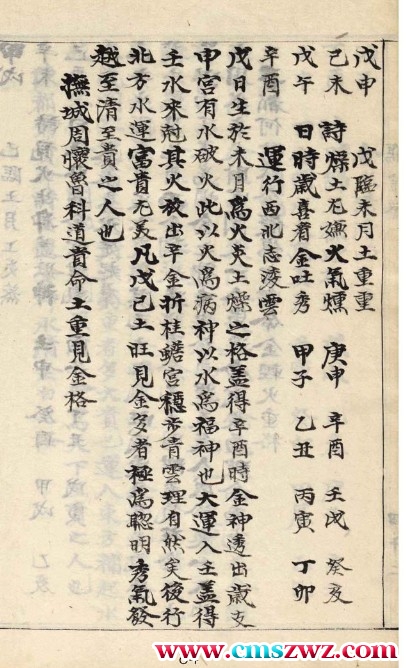 戊申 戊臨未月土重重
己未 詩 燥土尤嫌火氣燻 庚申 辛酉 壬戌 癸亥
戊午 曰 時歲喜看金旺秀 甲子 乙丑 丙寅 丁卯
辛酉 運行西北志凌雲
戊日生於未月為火炎土燥之格蓋得辛酉時金神透出歲支
申宮有水破火此以火為病神以水為福神也大運入壬蓋得
壬水來尅其火放出辛金折桂蟾宮穩步青雲理有然矣後行
北方水運富貴尤美凡戊己土旺見金多者極為聰明秀氣發
越至清至貴之人也
撫城周懷魯科道貴命土重見金格
www.cmszwz.com